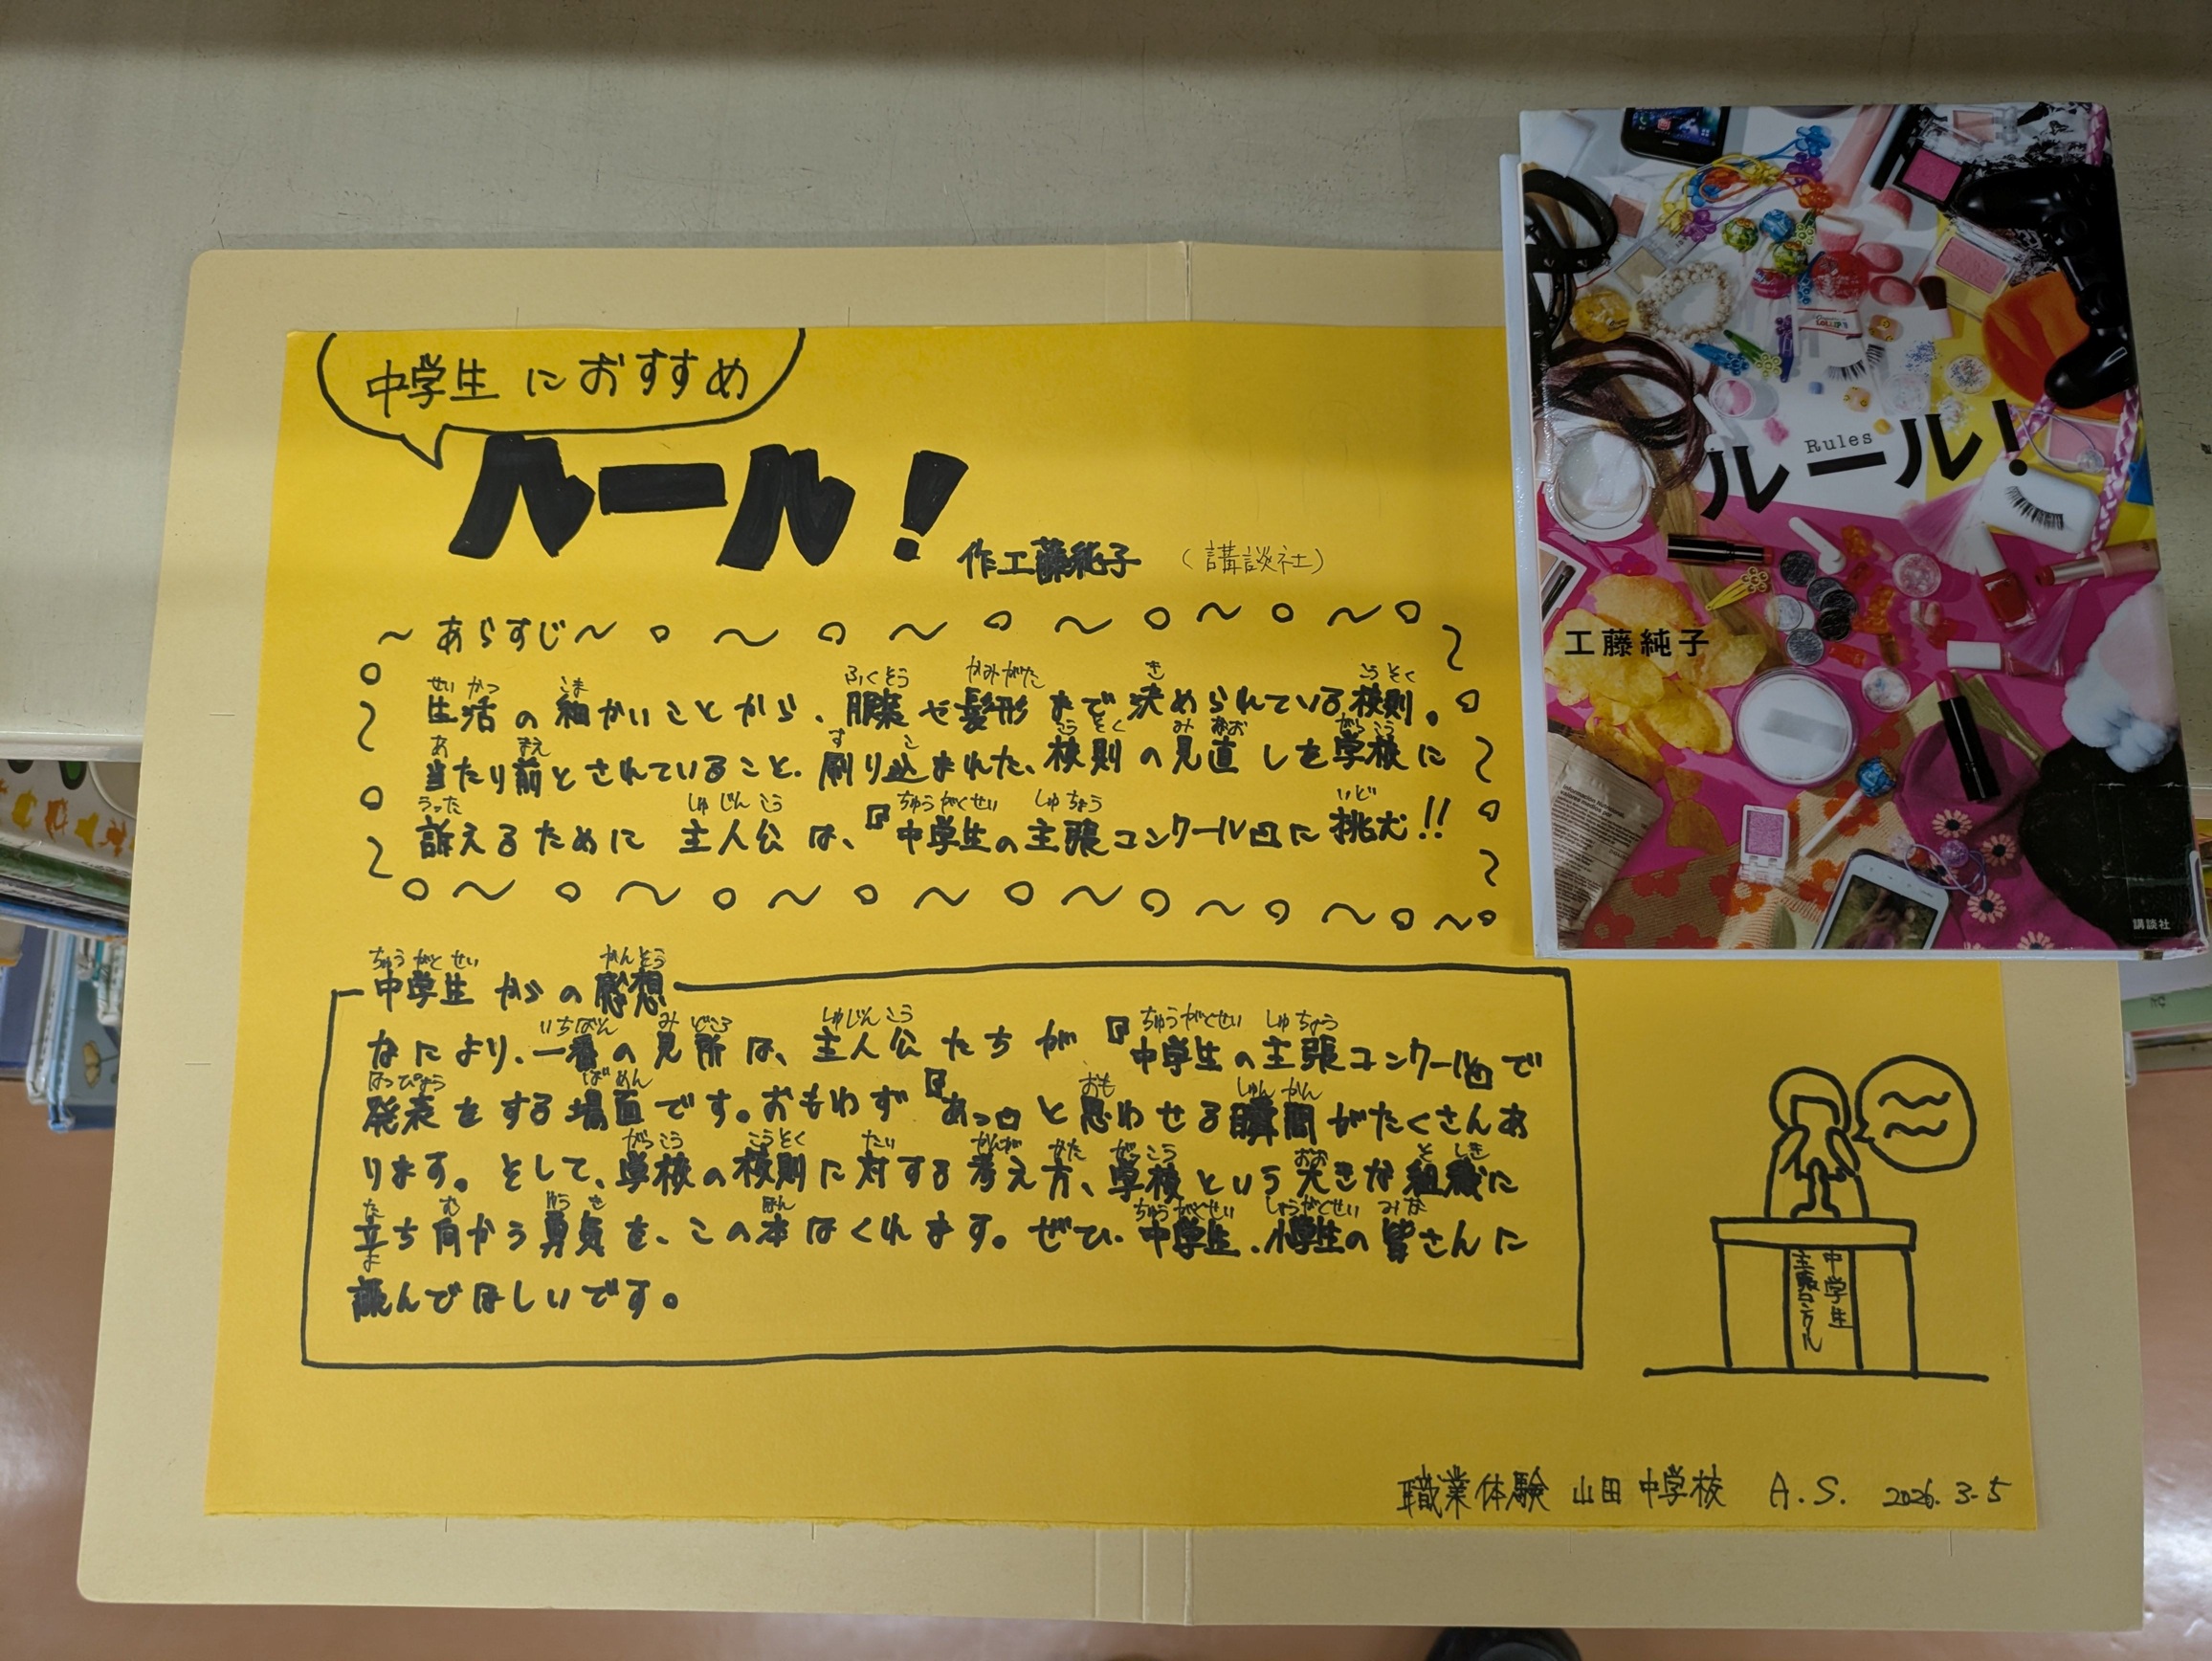 中学生におすすめ
ルール!
作工藤純子 (講談社)
~あらすじ~
生活の細かいことから、服装や髪形まで決められている校則。
当たり前とされていること、刷り込まれた、校則の見直しを学校に
訴えるために主人公は、『中学生の主張コンクール』に挑む!!
中学生からの感想
なにより、一番の見所は、主人公たちが『中学生の主張コンクール』で
発表をする場面です。おもわず『あっ』と思わせる瞬間がたくさんあ
ります。そして、学校の校則に対する考え方、学校という大きな組織に
立ち向かう勇気を、この本はくれます。ぜひ、中学生、小学生の皆さんに
読んでほしいです。
中学生
主張コンクール
職業体験 山田中学校 A.S. 2026.3.5
Rules
ルール!
工藤純子
講談社